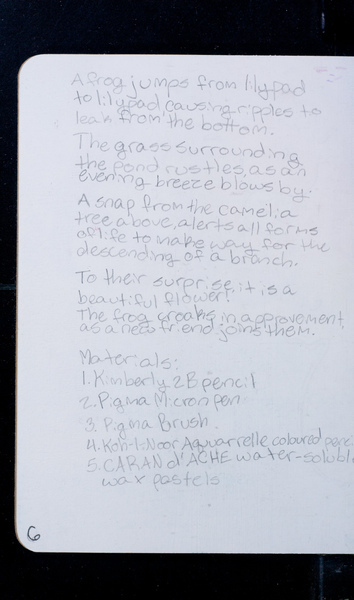 A frog jumps from lilypad
to lilypad causing ripples to
leak from the bottom.
The grass surrounding
the pond rustles, as an
evening breeze blows by.
A snap from the camelia
tree above, alerts all forms
of life to make way for the
descending of a branch.
To their surprise, it is a
beautiful flower!
The frog croaks in approvement,
as a new friend joins them.
Materials:
1. Kimberly 2B pencil
2. Pigma Micron pen
3. Pigma Brush
4. Koh-I-Noor Aquarrelle coloured penci
5. CARAN d'ACHE water-soluble
wax pastels
6